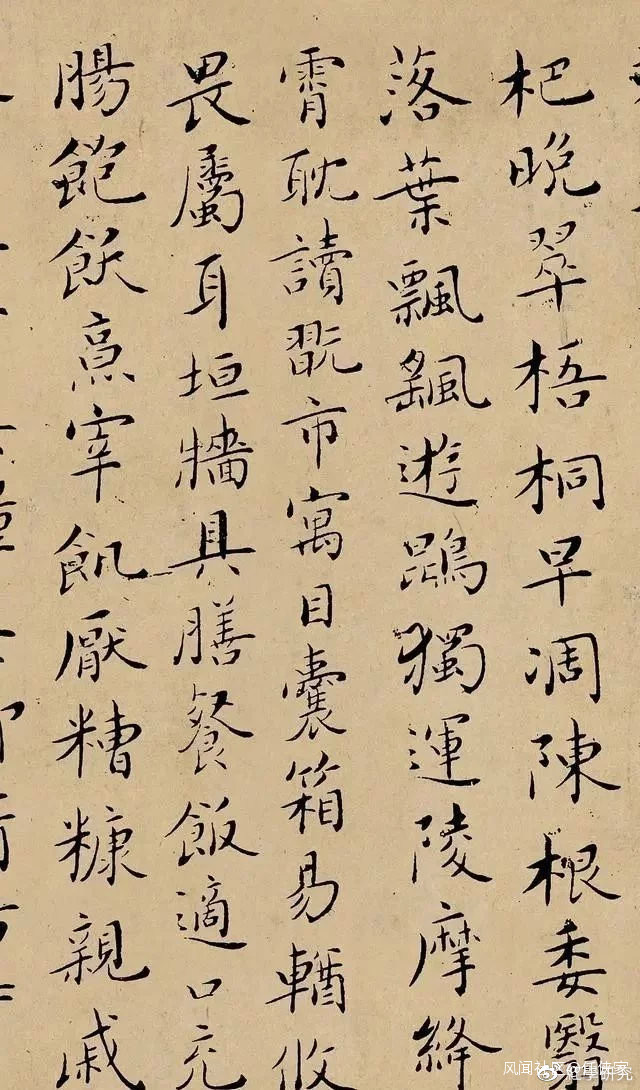 杷晚翠梧桐早凋陳根委翳
落葉飄飖遊鵾獨運陵摩絳
霄耽讀翫市寓目囊箱易輶攸
畏屬耳垣牆具膳飡飯適口充
腸飽飫烹宰飢厭糟糠親戚
风闻社区